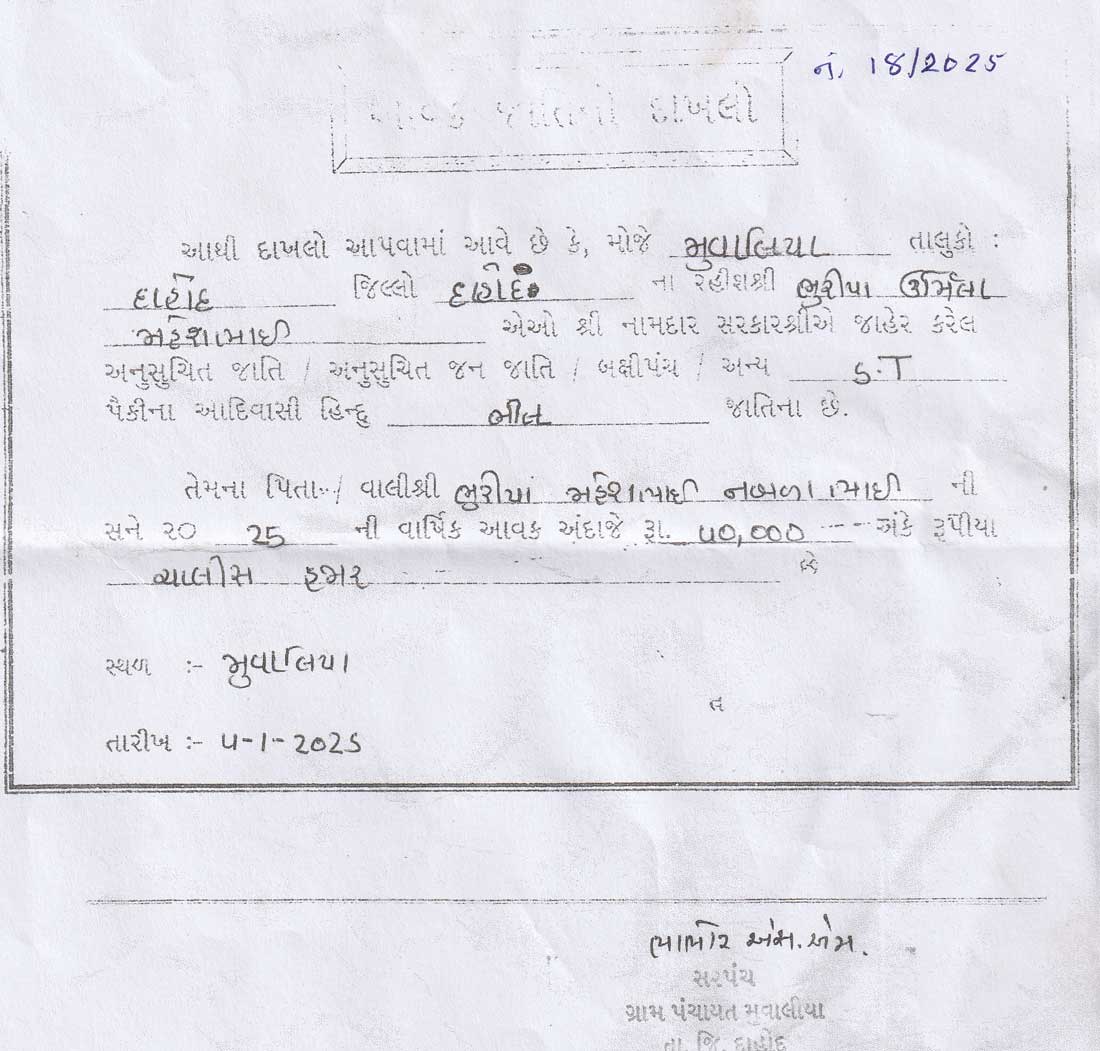 નં. 18/2025
આવક જાતિનો દાખલો
આથી દાખલો આપવામાં આવે છે કે, મોજે મુવાલિયા તાલુકો :
દાહોદ જિલ્લો દાહોદ ના રહીશશ્રી ભુરીયા ઉર્મિલા
મહેશભાઈ એઓ શ્રી નામદાર સરકારશ્રીએ જાહેર કરેલ
અનુસુચિત જાતિ / અનુસુચિત જન જાતિ / બક્ષીપંચ / અન્ય S.T
પૈકીના આદિવાસી હિન્દુ ભીલ જાતિના છે.
તેમના પિતા / વાલીશ્રી ભુરીયા મહેશભાઈ નબળાભાઈ ની
સને ૨૦ 25 ની વાર્ષિક આવક અંદાજે રૂા. ૫૦,૦૦૦ અંકે રૂપીયા
ચાલીસ હજાર છે
સ્થળ :- મુવાલિયા
ત
તારીખ :- ૫-1-2025
ભાભોર એમ.એમ.
સરપંચ
ગ્રામ પંચાયત મુવાલીયા
તા. જિ. દાહોદ